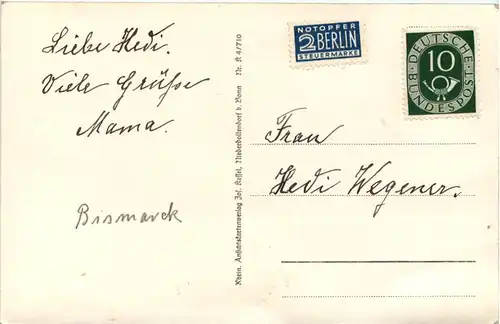 Liebe Hedi.
Viele Grüße
Mama.
Bismarck
Rhein. Ansichtskartenverlag Jos. Kessel, Niederdollendorf b. Bonn Nr. K 4/710
NOTOPFER
2 BERLIN
STEUERMARKE
DEUTSCHE
BUNDESPOST
10
Frau
Hedi Wegener.